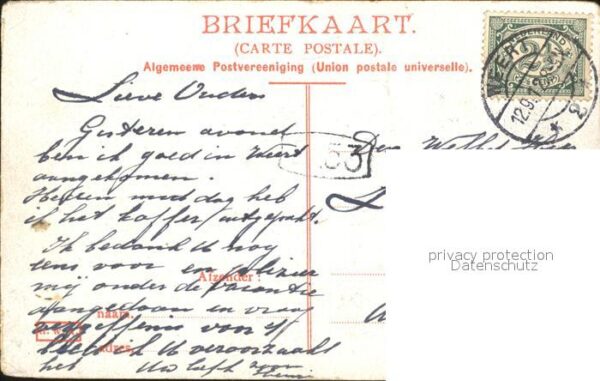 BRIEFKAART.
(CARTE POSTALE).
Algemeene Postvereeniging (Union postale universelle).
NEDERLAND
WEERT
12.9.
Lieve Ouders
Gisteren avond
ben ik goed in Weert
aangekomen.
Heden middag heb
ik het koffer uitgepakt.
Ik bedank U nog
eens voor en plezier
mij onder de vacantie
aangedaan en vraag
vergiffenis voor 't
ik U veroorzaakt
heb Uw liefh zoon
53
Den
Afzender:
naam.
adres.
privacy protection
Datenschutz